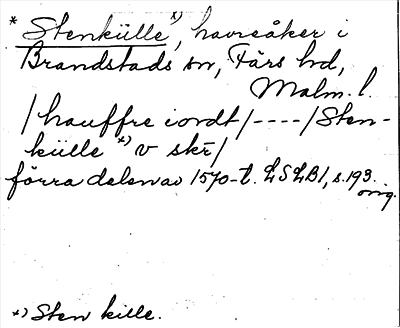 * Stenkülle *), havreåker i
Brandstads sn, Färs hd,
Malm. l.
/hauffre iordt/----/Sten-
külle *) v skr/
förra delen av 1570-t. LSLB1, s. 193.
orig.
*) Sten kille.